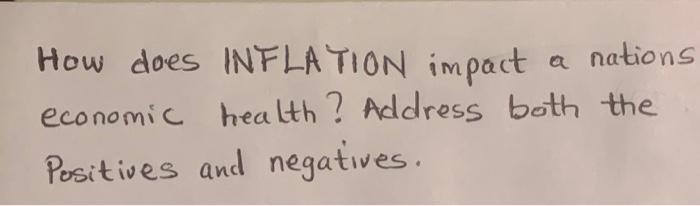 How does INFLATION impact a nations
economic health? Address both the
Positives and negatives.